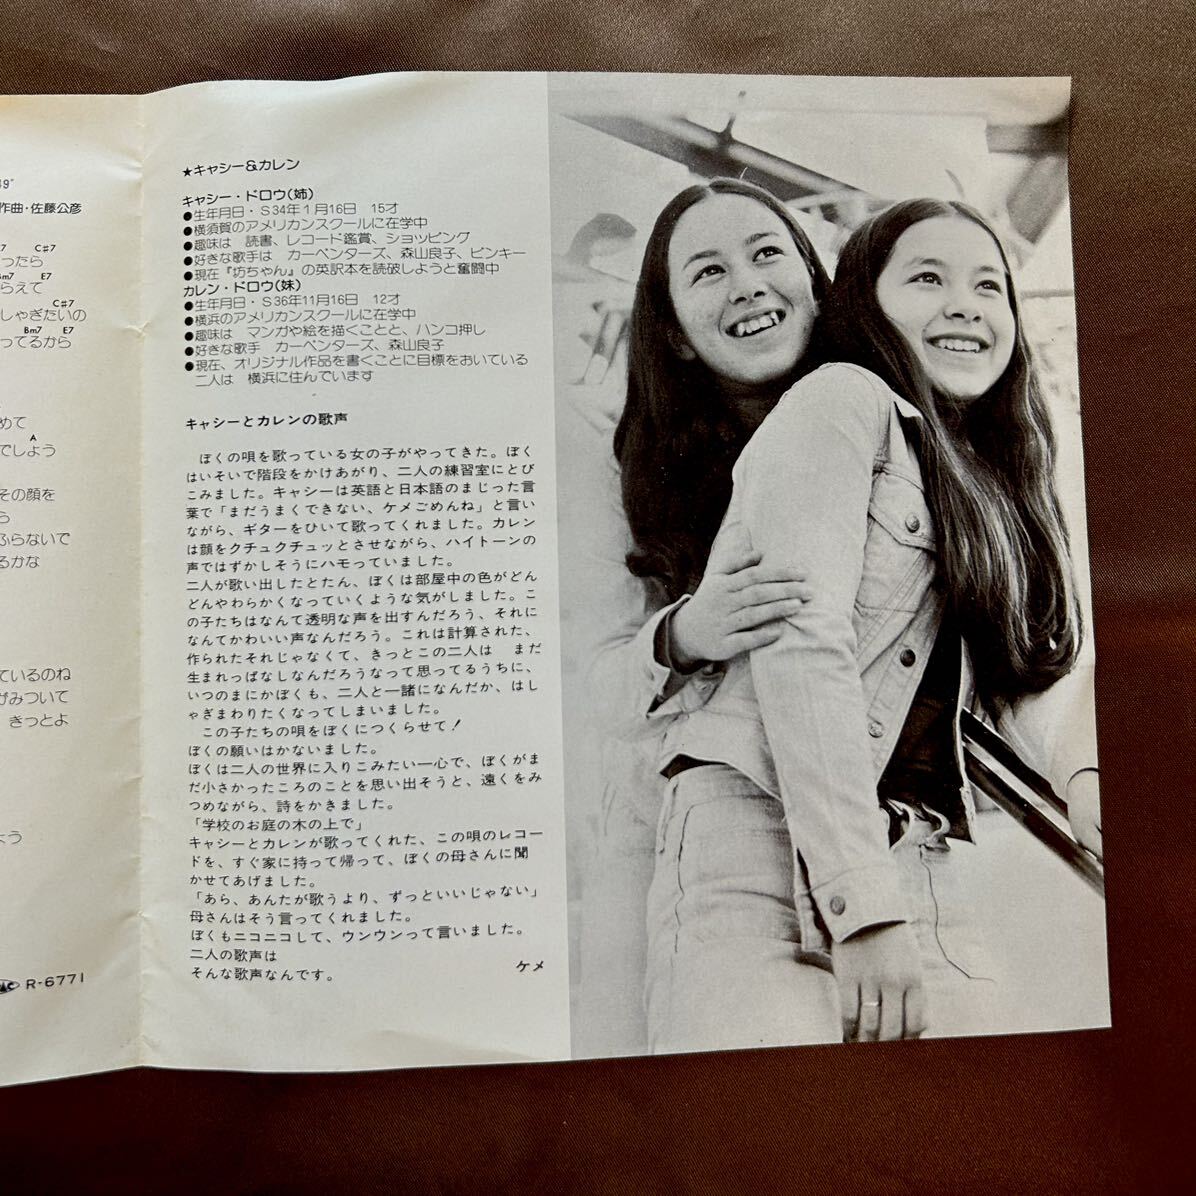 49"
作曲・佐藤公彦
7 C#7
ったら
Bm7 E7
らえて
C#7
しゃぎたいの
Bm7 E7
ってるから
めて
A
でしよう
その顔を
ら
ふらないで
るかな
ているのね
がみついて
きっとよ
よう
R-6771
★キャシー&カレン
キャシー・ドロウ(姉)
●生年月日・S34年1月16日 15才
●横須賀のアメリカンスクールに在学中
●趣味は 読書、レコード鑑賞、ショッピング
●好きな歌手は カーペンターズ、森山良子、ピンキー
●現在『坊ちゃん』の英訳本を読破しようと奮闘中
カレン・ドロウ(妹)
●生年月日・S36年11月16日 12才
●横浜のアメリカンスクールに在学中
●趣味は マンガや絵を描くことと、ハンコ押し
●好きな歌手 カーペンターズ、森山良子
●現在、オリジナル作品を書くことに目標をおいている
二人は 横浜に住んでいます
キャシーとカレンの歌声
ぼくの唄を歌っている女の子がやってきた。ぼく
はいそいで階段をかけあがり、二人の練習室にとび
こみました。キャシーは英語と日本語のまじった言
葉で「まだうまくできない、ケメごめんね」と言い
ながら、ギターをひいて歌ってくれました。カレン
は顔をクチュクチュッとさせながら、ハイトーンの
声ではずかしそうにハモっていました。
二人が歌い出したとたん、ぼくは部屋中の色がどん
どんやわらかくなっていくような気がしました。こ
の子たちはなんて透明な声を出すんだろう、それに
なんてかわいい声なんだろう。これは計算された、
作られたそれじゃなくて、きっとこの二人は まだ
生まれっぱなしなんだろうなって思ってるうちに、
いつのまにかぼくも、二人と一諸になんだか、はし
ゃぎまわりたくなってしまいました。
この子たちの唄をぼくにつくらせて!
ぼくの願いはかないました。
ぼくは二人の世界に入りこみたい一心で、ぼくがま
だ小さかったころのことを思い出そうと、遠くをみ
つめながら、詩をかきました。
「学校のお庭の木の上で」
キャシーとカレンが歌ってくれた、この唄のレコー
ドを、すぐ家に持って帰って、ぼくの母さんに聞
かせてあげました。
「あら、あんたが歌うより、ずっといいじゃない」
母さんはそう言ってくれました。
ぼくもニコニコして、ウンウンって言いました。
二人の歌声は
そんな歌声なんです。 ケメ